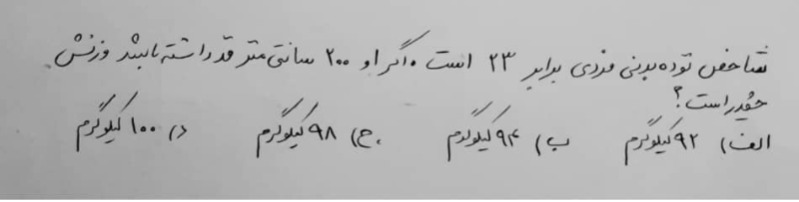 شاخص توده بدنی فردی برابر ۲۳ است . اگر او ۲۰۰ سانتی متر قد داشته باشد وزنش
چقدر است ؟
الف) ۹۲ کیلوگرم ب) ۹۴ کیلوگرم ج) ۹۸ کیلوگرم د) ۱۰۰ کیلوگرم